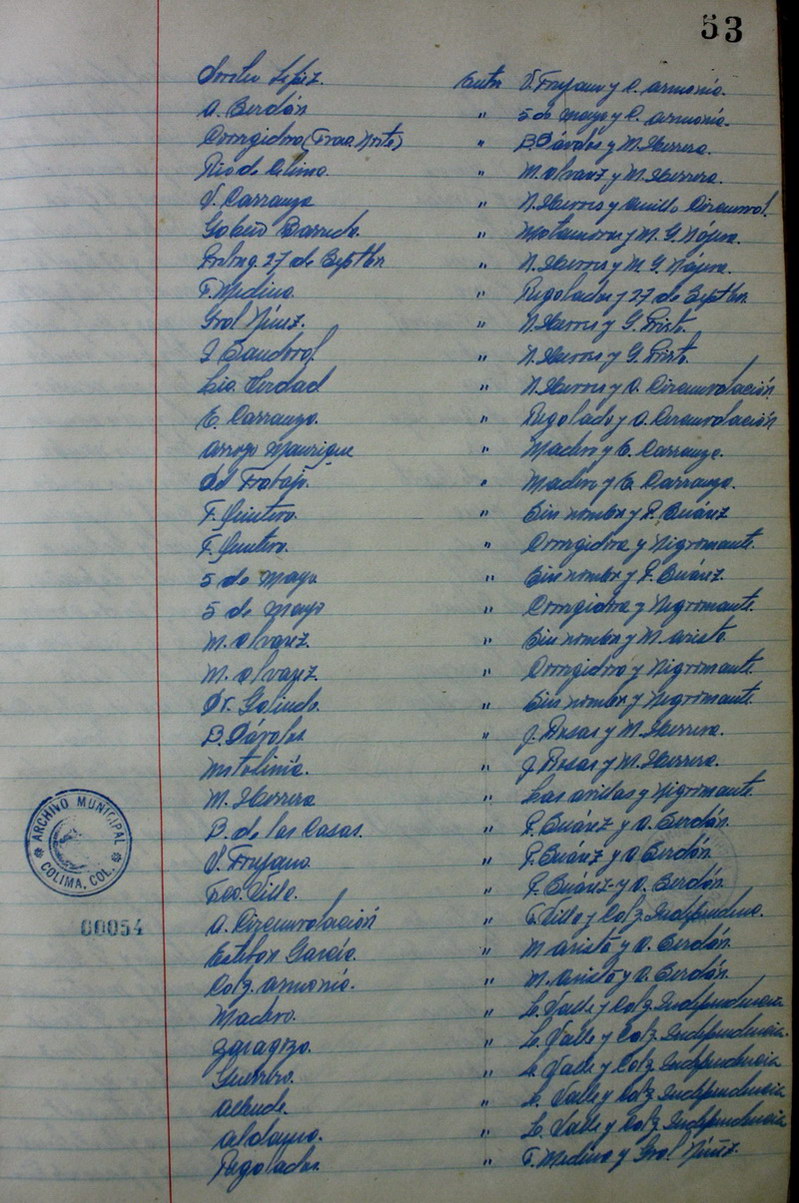 53
López. Entre V. Trujano y C. armonía.
A. Berdón " 5 de Mayo y C. armonía.
Corregidora (Fracc. Norte) " B. Dávalos y M. Herrera.
Rio de Colima. " M. Alvarez y M. Herrera.
V. Carranza " N. Heroes y Anillo Circunval.
Gabino Barreda. " Matamoros y M. G. Nájera.
Prolong. 27 de Septbre " N. Heroes y M. G. Nájera.
F. Medina " Regalado y 27 de Septbre.
Gral Núñez. " N. Heroes y G. Prieto.
J. Sandoval " N. Heroes y G. Prieto.
Lic. Verdad " N. Heroes y A. Circunvalación
E. Carranza. " Regalado y A. Circunvalación
arroyo Manrique " Madero y E. Carranza.
del Trabajo. " Madero y E. Carranza.
F. Quintero. " Sin nombre y P. Suárez
F. Quintero. " Corregidora y Nigromante.
5 de Mayo " Sin nombre y P. Suárez.
5 de Mayo " Corregidora y Nigromante.
M. Alvarez. " Sin nombre y M. arista
M. Alvarez. " Corregidora y Nigromante.
Dr. Galindo. " Sin nombre y Nigromante.
B. Dávalos " J. Rosas y M. Herrera.
Motolinia. " J. Rosas y M. Herrera.
M. Herrera " Las y Nigromante.
B. de las Casas. " P. Suárez y A. Berdón.
V. Trujano. " P. Suárez y A Berdón.
Fco. Villa. " P. Suárez y A. Berdón.
A. Circunvalación " F. Villa y Calz. Independencia.
Esteban García. " M. arista y A. Berdón.
Calz. armonía. " M. arista y A. Berdón.
Madero. " L. Valle y Calz. Independencia
Zaragoza. " L. Valle y Calz. Independencia.
Guerrero. " L. Valle y Calz. Independencia
Allende. " L. Valle y Calz. Independencia
aldama. " L. Valle y Calz. Independencia
Regalado. " F. Medina y Gral Núñez.
ARCHIVO MUNICIPAL
COLIMA, COL.
00054